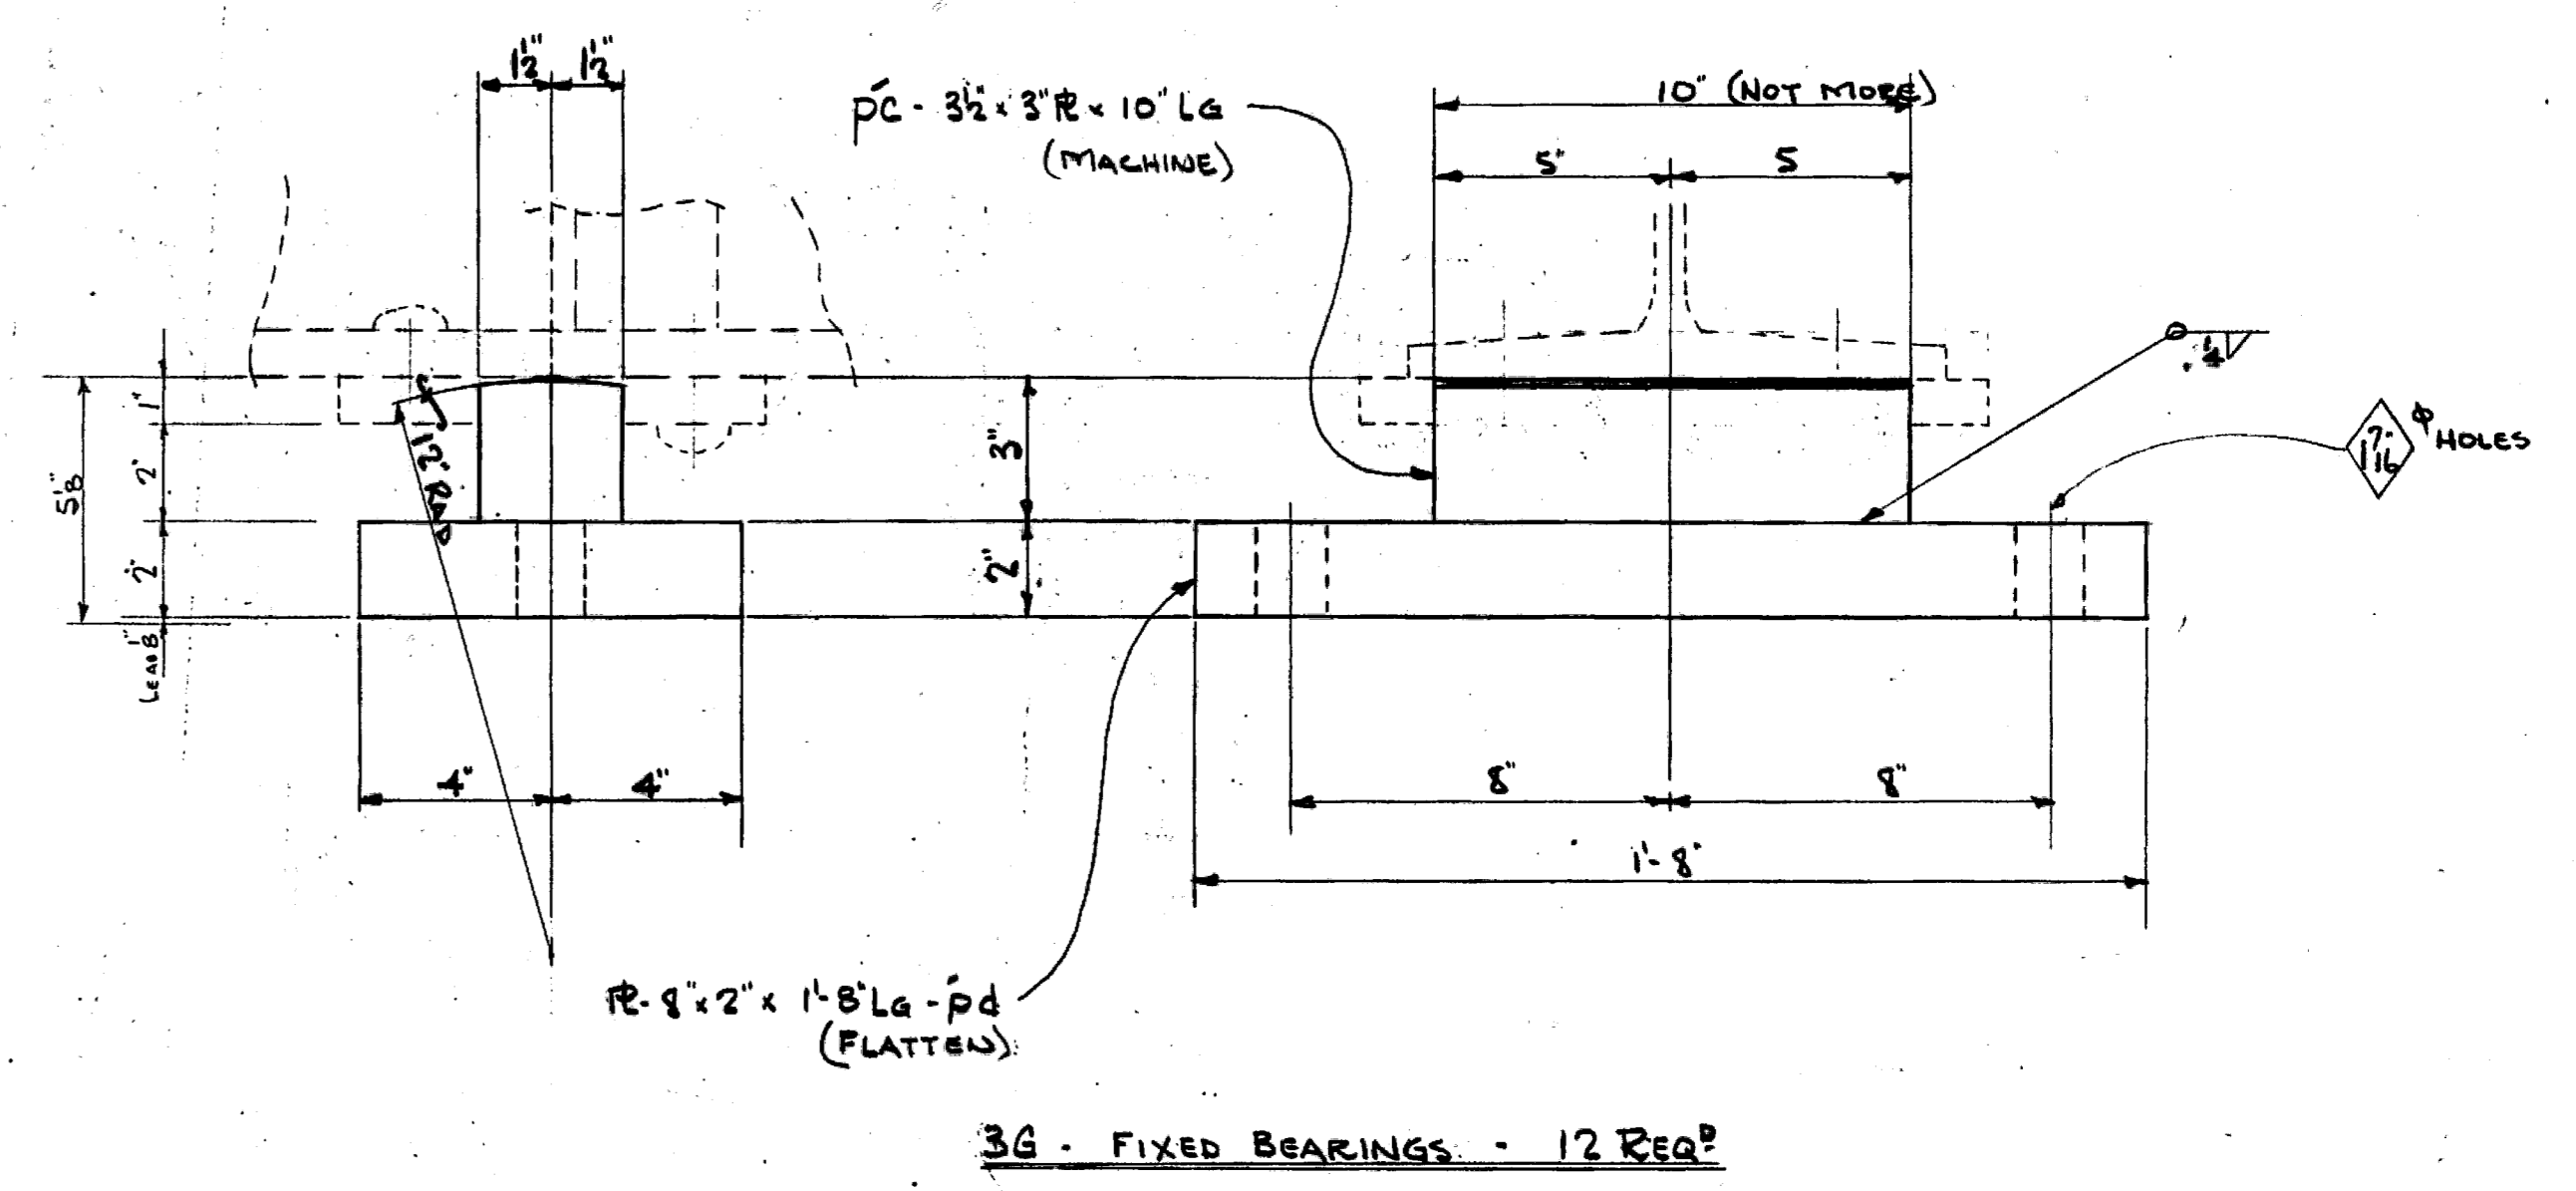 1½" 1½"
pc - 3½" x 3" ℞ x 10" LG
(MACHINE)
10" (NOT MORE)
5" 5
¼
1 7/16 ϕ HOLES
1"
2"
5⅛"
2"
LEAD ⅛"
12" RAD
f
3"
2"
4" 4"
8" 8"
1'-8"
℞ - 8" x 2" x 1'-8" LG - pd
(FLATTEN)
3G - FIXED BEARINGS - 12 REQD